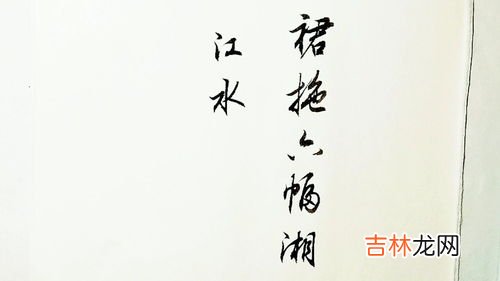 裙拖六幅湘
江水
吉林龙网